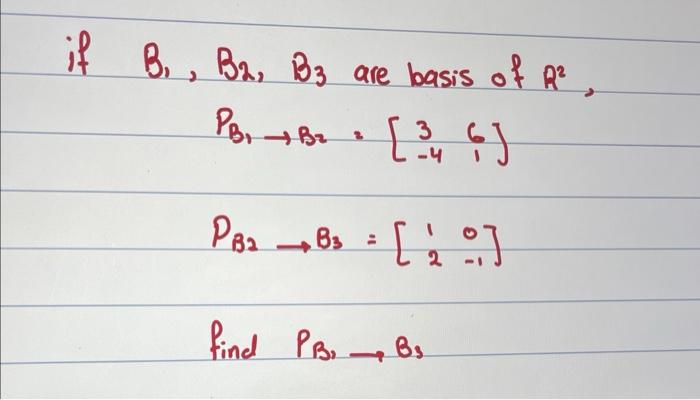 if B₁, B₂, B₃ are basis of R²,
P_B₁ → B₂ = [3 6
-4 1]
P_B₂ → B₃ = [1 0
2 -1]
find P_B₁ → B₃